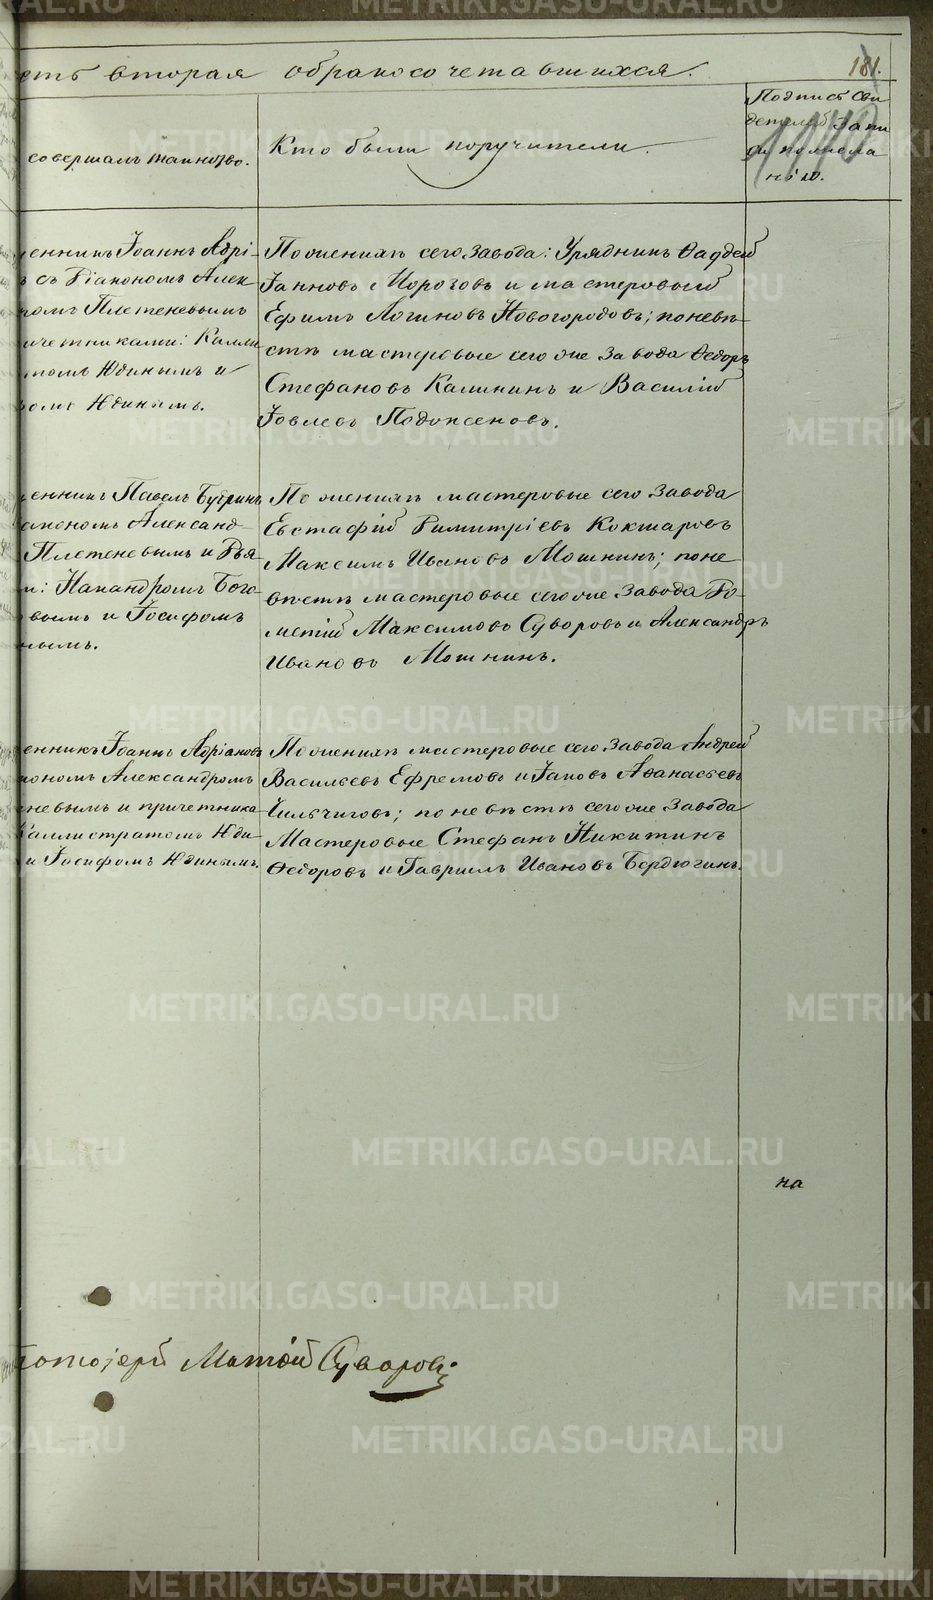 сть вторая о бракосочетавшихся.
181.
совершалъ таинство.
Кто были поручители.
Подпись сви
детелей запи
си по жела
нію.
енникъ Іоаннъ Адрі-
ъ съ Діакономъ Алек
ромъ Плетеневымъ
ичетниками: Калли
томъ Юдинымъ и
омъ Юдинымъ.
По женихѣ сего завода: Урядникъ Фаддей
Іаковъ Морозовъ и мастеровый
Ефимъ Логиновъ Новогородовъ; по невѣ-
стѣ мастеровые сего же завода Ѳедоръ
Стефановъ Калининъ и Василій
Іовлевъ Подоксеновъ.
енникъ Павелъ Бубринъ
акономъ Александ
Плетеневымъ и Дья-
и: Никандромъ Бого
вымъ и Іосифомъ
нымъ.
По женихѣ мастеровые сего завода
Евстафій Димитріевъ Кокшаровъ
Максимъ Ивановъ Мошнинъ; по не
вѣстѣ мастеровые сего же завода До-
метій Максимовъ Суворовъ и Александръ
Ивановъ Мошнинъ.
енникъ Іоаннъ Адріановъ
кономъ Александромъ
еневымъ и причетника
Каллистратомъ Юди-
и Іосифомъ Юдинымъ.
По женихѣ мастеровые сего завода Андрей
Васильевъ Ефремовъ и Іаковъ Аѳанасьевъ
по невѣстѣ сего же завода
Мастеровые Стефанъ Никитинъ
Ѳедоровъ и Гавріилъ Ивановъ Бердюгинъ.
на
тоіерей Матѳій Суворовъ
METRIKI.GASO-URAL.RU